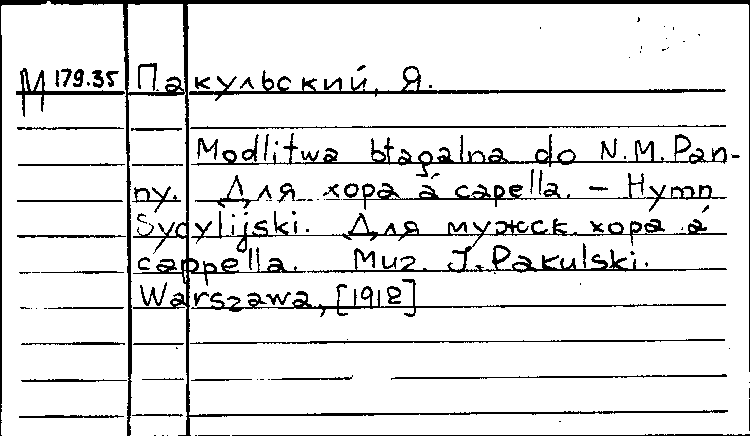 М 179.35 Пакульский, Я.
Modlitwa błagalna do N.M.Pan-
ny. Для хора á capella. – Hymn
Sycylijski. Для мужск. хора á
cappella. Muz. J. Pakulski.
Warszawa, [1912]